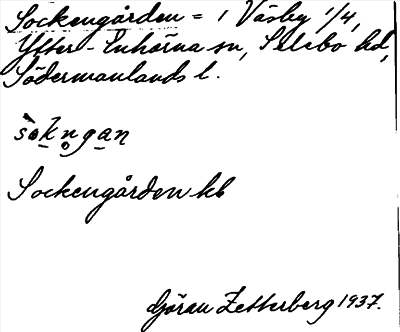 Sockengården = 1 Väsby 1/4,
Ytter-Enhörna sn, Selebo hd,
Södermanlands l.
sòkngan
Sockengården kb
Göran Zetterberg 1937.